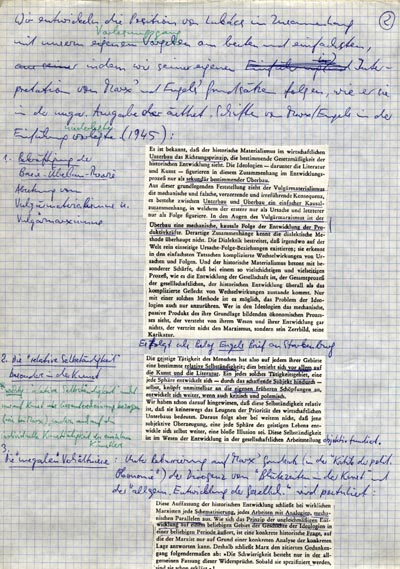 2
Wir entwickeln die Position von Lukács im Zusammenhang
Vorlesungsgang
mit unserm eigenen Vorgehen am besten und einfachsten,
indem wir seiner eigenen Inter-
pretation von Marx' und Engels' Grundsätzen folgen, wie er sie
in der ungar. Ausgabe der ästhet. Schriften von Marx/Engels in der
Einführung vorlegte (1945):
Es ist bekannt, daß der historische Materialismus im wirtschaftlichen
Unterbau das Richtungsprinzip, die bestimmende Gesetzmäßigkeit der
historischen Entwicklung sieht. Die Ideologien — darunter die Literatur
und Kunst — figurieren in diesem Zusammenhang im Entwicklungs-
prozeß nur als sekundär bestimmender Überbau.
Aus dieser grundlegenden Feststellung zieht der Vulgärmaterialismus
die mechanische und falsche, verzerrende und irreführende Konsequenz,
es bestehe zwischen Unterbau und Überbau ein einfacher Kausal-
zusammenhang, in welchem der erstere nur als Ursache und letzterer
nur als Folge figuriere. In den Augen des Vulgärmarxismus ist der
Überbau eine mechanische, kausale Folge der Entwicklung der Pro-
duktivkräfte. Derartige Zusammenhänge kennt die dialektische Me-
thode überhaupt nicht. Die Dialektik bestreitet, daß irgendwo auf der
Welt rein einseitige Ursache-Folge-Beziehungen existieren; sie erkennt
in den einfachsten Tatsachen komplizierte Wechselwirkungen von Ur-
sachen und Folgen. Und der historische Materialismus betont mit be-
sonderer Schärfe, daß bei einem so vielschichtigen und vielseitigen
Prozeß, wie es die Entwicklung der Gesellschaft ist, der Gesamtprozeß
der gesellschaftlichen, der historischen Entwicklung überall als das
komplizierte Geflecht von Wechselwirkungen zustande kommt. Nur
mit einer solchen Methode ist es möglich, das Problem der Ideolo-
gien auch nur anzurühren. Wer in den Ideologien das mechanische,
passive Produkt des ihre Grundlage bildenden ökonomischen Prozes-
ses sieht, der versteht von ihrem Wesen und ihrer Entwicklung gar
nichts, der vertritt nicht den Marxismus, sondern sein Zerrbild, seine
Karikatur.
1. Bekräftigung der
Basis-Überbau-Theorie
Vulgärmaterialismus u.
Vulgärmarxismus
Es folgt als Beleg Engels' Brief an Starkenburg
2. Die "relative Selbständigkeit"
besonders in der Kunst
Die geistige Tätigkeit des Menschen hat also auf jedem ihrer Gebiete
eine bestimmte relative Selbständigkeit; dies bezieht sich vor allem auf
die Kunst und die Literatur. Ein jedes solches Tätigkeitsgebiet, eine
jede Sphäre entwickelt sich — durch das schaffende Subjekt hindurch —
selber, knüpft unmittelbar an die eigenen früheren Schöpfungen an,
entwickelt sich weiter, wenn auch kritisch und polemisch.
Wir haben schon darauf hingewiesen, daß diese Selbständigkeit relativ
ist, daß sie keineswegs das Leugnen der Priorität des wirtschaftlichen
Unterbaus bedeutet. Daraus folgt aber bei weitem nicht, daß jene
subjektive Überzeugung, eine jede Sphäre des geistigen Lebens ent-
wickle sich selbst weiter, eine bloße Illusion sei. Diese Selbständigkeit
ist im Wesen der Entwicklung in der gesellschaftlichen Arbeitsteilung
objektiv fundiert.
3. Die "inegalen" Verhältnisse: Unter Rekurrierung auf Marx' (in der "Kritik der polit.
Ökonomie") der Divergenz von "Blütezeiten in der Kunst" und
der "allgem. Entwicklung der Gesellsch." wird postuliert:
Diese Auffassung der historischen Entwicklung schließt bei wirklichen
Marxisten jede Schematisierung, jedes Arbeiten mit Analogien, mecha-
nischen Parallelen aus. Wie sich das Prinzip der ungleichmäßigen Ent-
wicklung auf einem beliebigen Gebiet der Geschichte der Ideologien in
einer beliebigen Periode äußert, ist eine konkrete historische Frage, auf
die der Marxist nur auf Grund einer konkreten Analyse der konkreten
Lage antworten kann. Deshalb schließt Marx den zitierten Gedanken-
gang folgendermaßen ab: »Die Schwierigkeit besteht nur in der all-
gemeinen Fassung dieser Widersprüche. Sobald sie spezifiziert werden,
sind sie schon erklärt.«